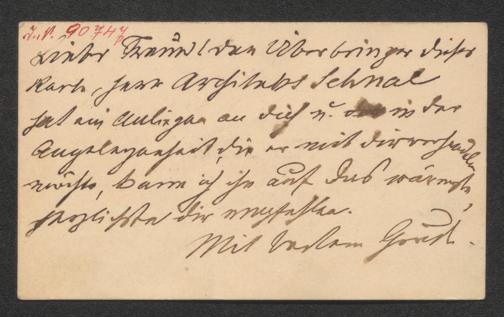 I.N. 90747
Lieber Freund! den Überbringer dieser
Karte, Herr Architekt Schnal
hat ein Anliegen an dich u. in der
Angelegenheit, die er mit dir verhandeln
möchte, kann ich ihn auf das wärmste,
herzlichste dir empfehlen.
Mit bestem Gruß.